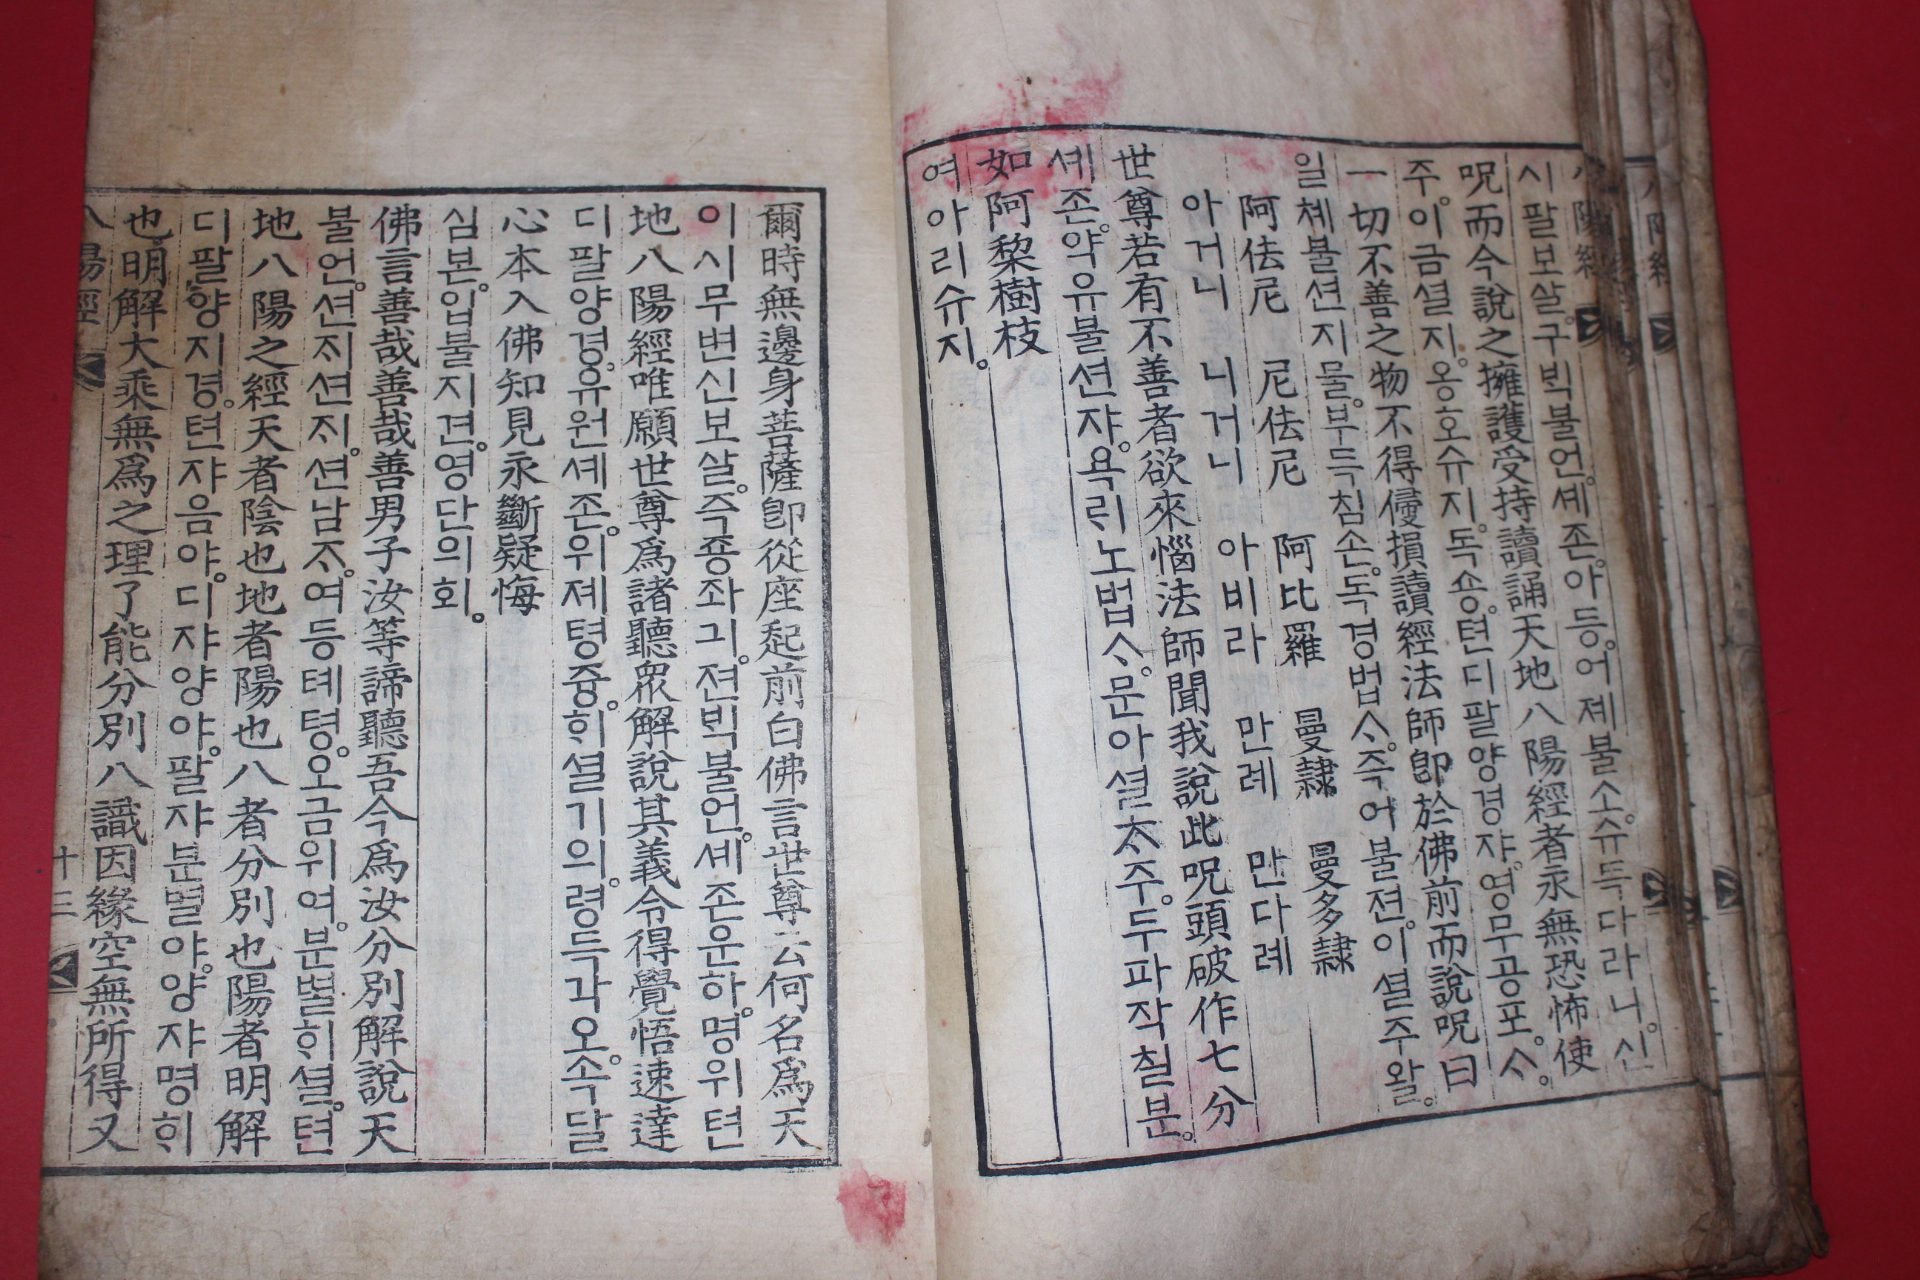 八陽經
시팔보살。구ᄇᆡᆨ불언。셰존。아등。어졔불소。슈득다라니。신
呪而今說之擁護受持讀誦天地八陽經者永無恐怖使
주。이금셜지。옹호슈지。독숑。텬디팔양경쟈。영무공포。ᄉᆞ。
一切不善之物不得侵損讀經法師卽於佛前而說呪曰
일쳬불션지물。부득침손。독경법ᄉᆞ。즉어불젼。이셜주왈。
阿佉尼 尼佉尼 阿比羅 曼隷 曼多隷
아거니 니거니 아비라 만례 만다례
世尊若有不善者欲來惱法師聞我說此呪頭破作七分
셰존。약유불션쟈。욕ᄅᆡ노법ᄉᆞ。문아셜ᄎᆞ주。두파작칠분。
如阿棃樹枝
여아리슈지。
爾時無邊身菩薩卽從座起前白佛言世尊云何名爲天
이시무변신보살。즉죵좌긔。젼ᄇᆡᆨ불언。셰존운하。명위텬
地八陽經唯願世尊爲諸聽衆解說其義令得覺悟速達
디팔양경。유원셰존。위졔텽즁。ᄒᆡ셜기의。령득각오。속달
心本入佛知見永斷疑悔
심본。입불지견。영단의회。
佛言善哉善哉善男子汝等諦聽吾今爲汝分別解說天
불언。션ᄌᆡ션ᄌᆡ。션남ᄌᆞ。여등톄텽。오금위여。분별ᄒᆡ셜。텬
地八陽之經天者陰也地者陽也八者分別也陽者明解
디팔양지경。텬쟈음야。디쟈양야。팔쟈분별야。양쟈명ᄒᆡ
也明解大乘無爲之理了能分別八識因緣空無所得又
八陽經 十三